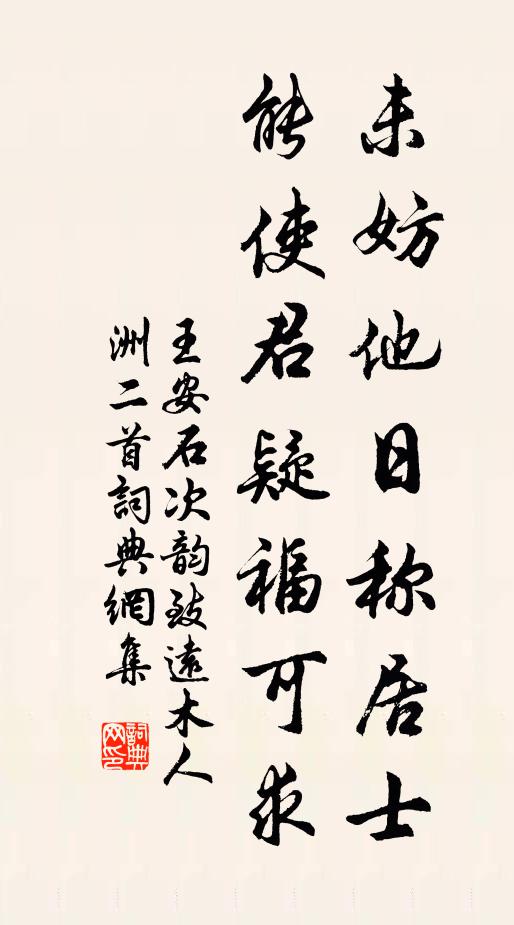 未妨他日称居士
能使君疑福可求
王安石次韵致遠木人
洲二首詞典網集
詞典網印